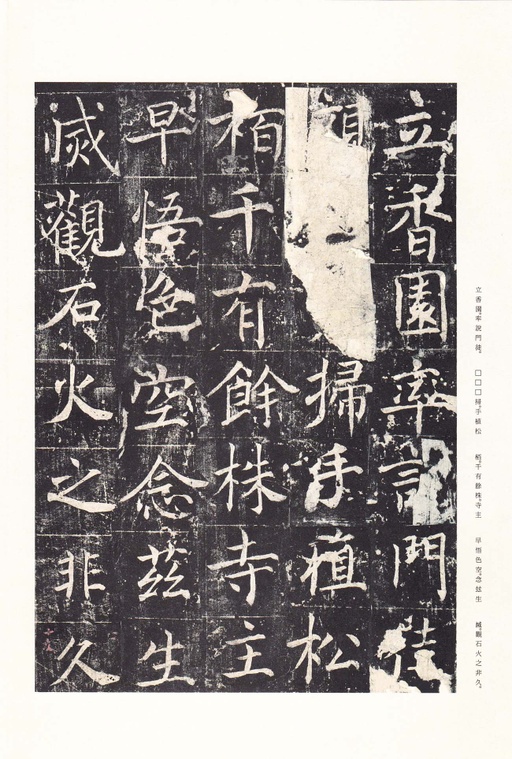 立香園率說門徒
掃手植松
栢千有餘株寺主
早悟色空念茲生
滅觀石火之非久
立香園、率說門徒。 □□□掃。手植松 栢、千有餘株。寺主 早悟色空。念玆生 滅。觀石火之非久。